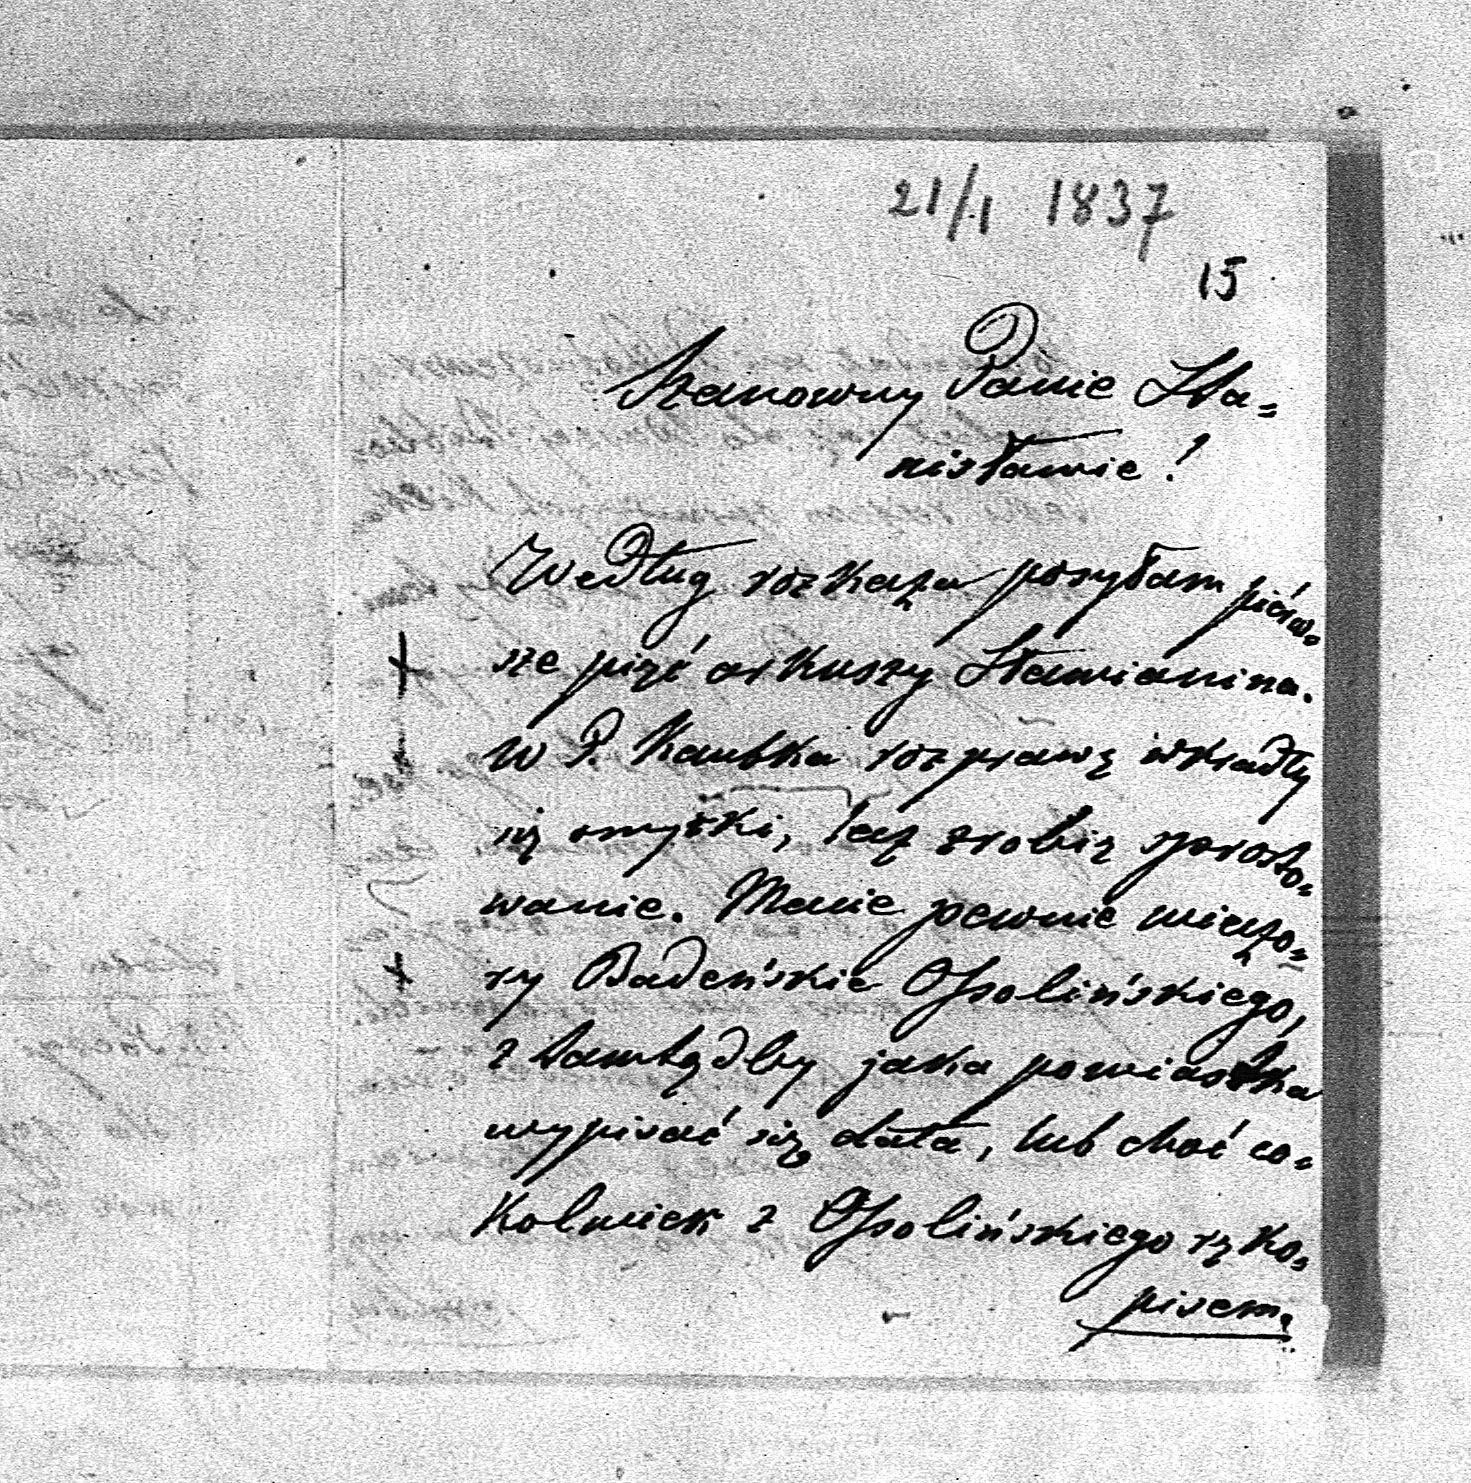 21/1 1837
15
Szanowny Panie Sta=
nisławie!
Według rozkazu posyłam piérw=
sze pięć arkuszy Sławianina.
W P. Kaubka rozprawę wkradły
się omyłki, lecz zrobią sprosto=
wanie. Macie pewnie wieczo=
ry Badeńskie Ossolińskiego,
z tamtądby jaka powiastka
wypisać się dała, lub choć co=
kolwiek z Ossolińskiego ręko=
pisem.